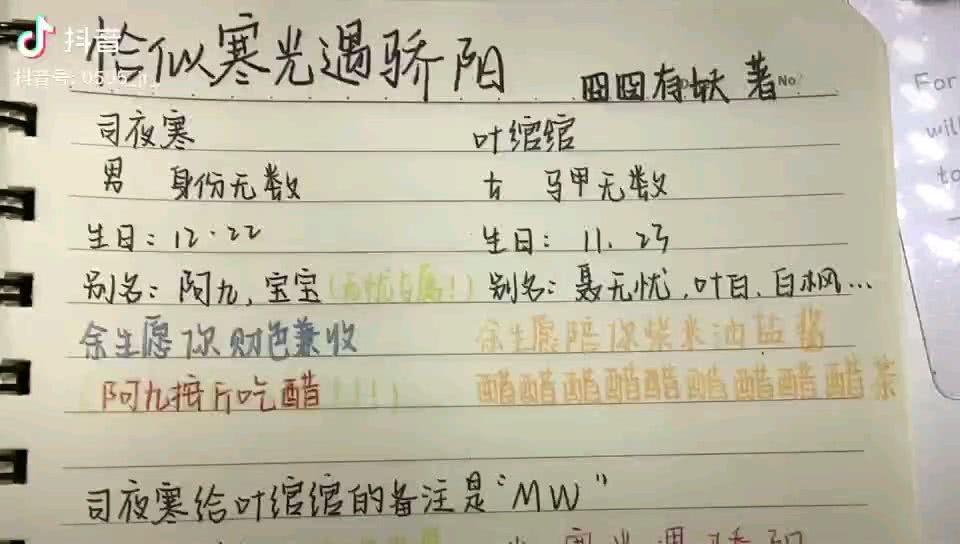 抖音
恰似寒光遇骄阳 囧囧有妖 著 No
抖音号:
For
司夜寒 叶绾绾
will
男 身份无数 女 马甲无数
to
生日：12.22 生日：11.23
别名：阿九,宝宝(无忧专属!) 别名：聂无忧,叶白、白枫...
余生愿你财色兼收 余生愿陪你柴米油盐酱
阿九按斤吃醋!!!!) 醋醋醋醋醋醋醋醋醋茶
司夜寒给叶绾绾的备注是“MW”